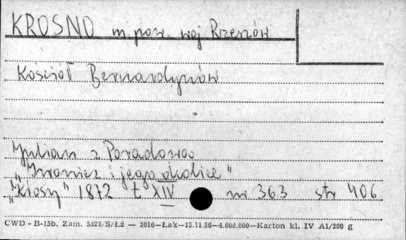 KROSNO m. pow. woj. Rzeszów
Kościół Bernardynów
Julian z Poradowa
"Iwonicz i jego okolice"
"Kłosy" 1872 t XIV nr 363 str 406
CWD - B-15b. Zam. 5823/S/Łż — 2016—Łak—15.11.56—4.000.000—Karton kl. IV A1/200 g